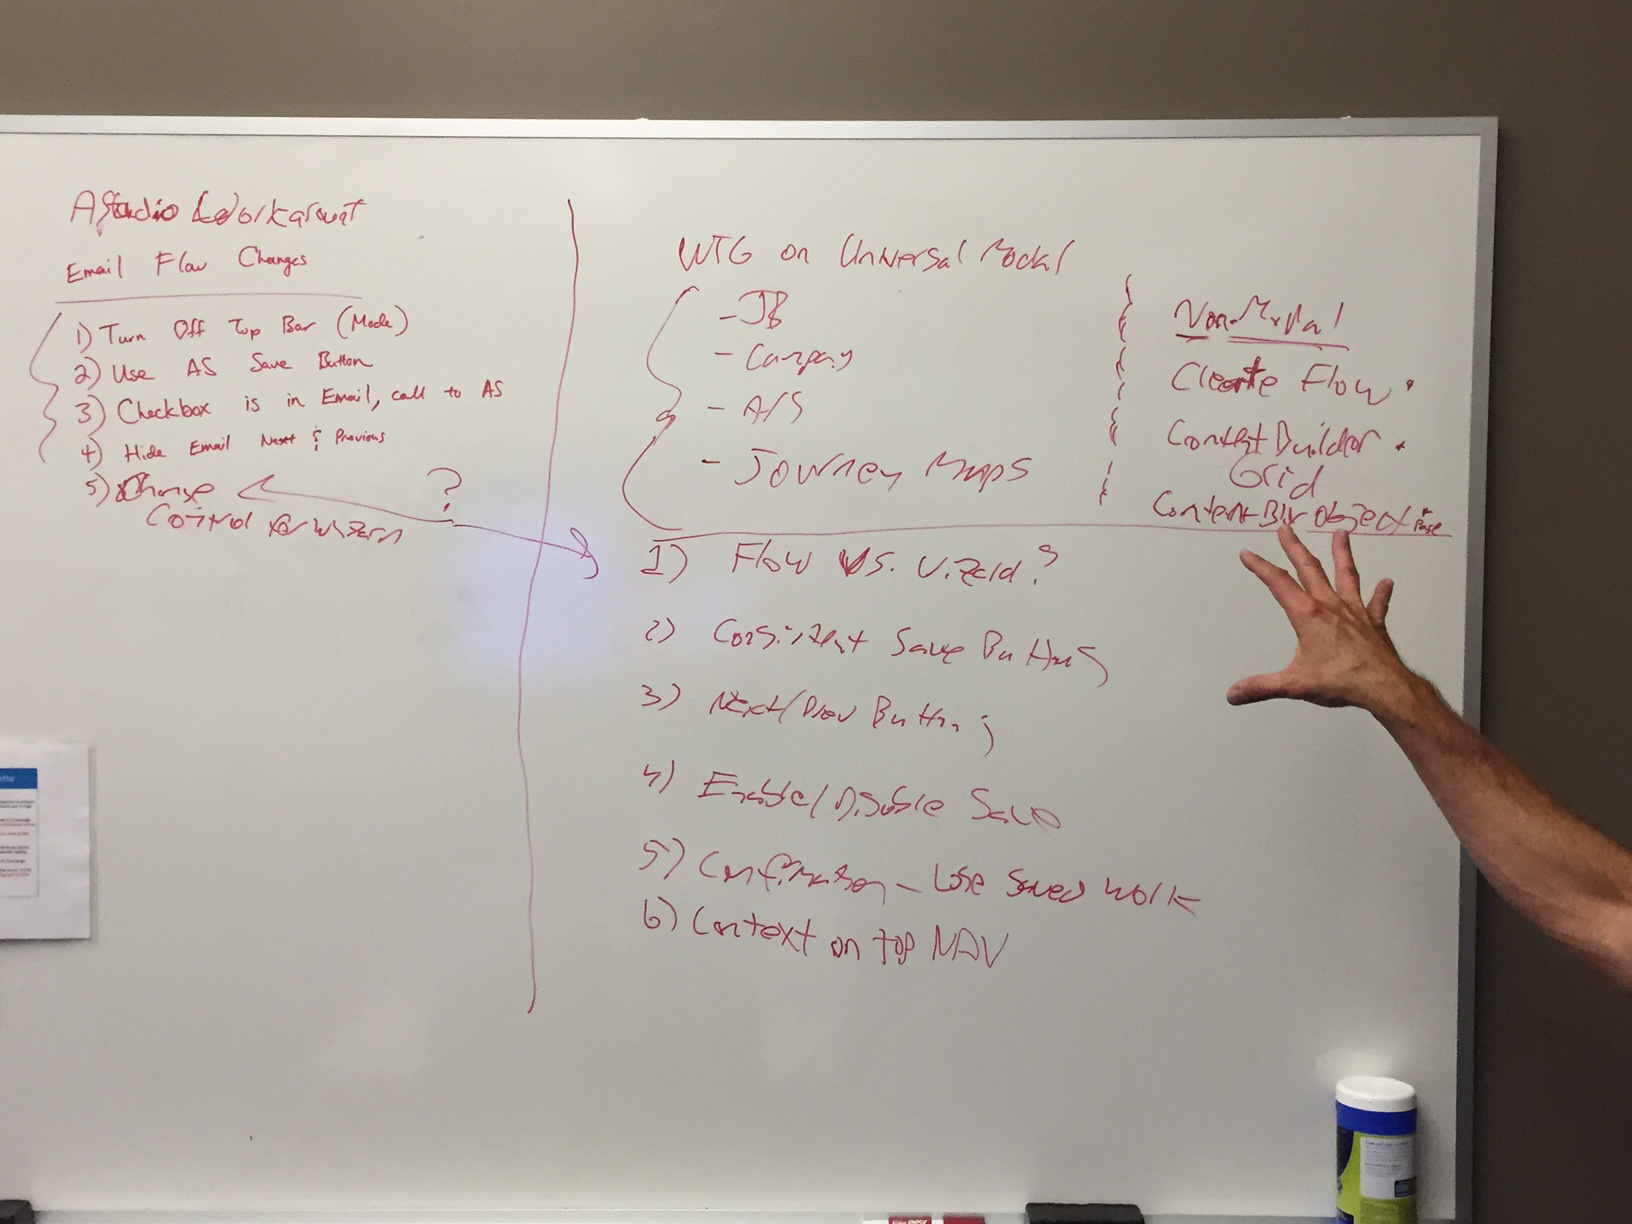 AStudio Workaround
Email Flow Changes
1) Turn Off Top Bar (Mode)
2) Use AS Save Button
3) Checkbox is in Email, call to AS
4) Hide Email Next & Previous
5) Change
Control for wizard
?
WTG on Universal Modal
- JB
- Campaign
- A/S
- Journey Maps
Non-Modal
Create Flow
Content Builder
Grid
Content Bldr Object Page
1) Flow vs. Wizard?
2) Consistent Save Buttons
3) Next/Prev Buttons
4) Enable/Disable Save
5) Confirmation - Lose Saved Work
6) Context on top NAV